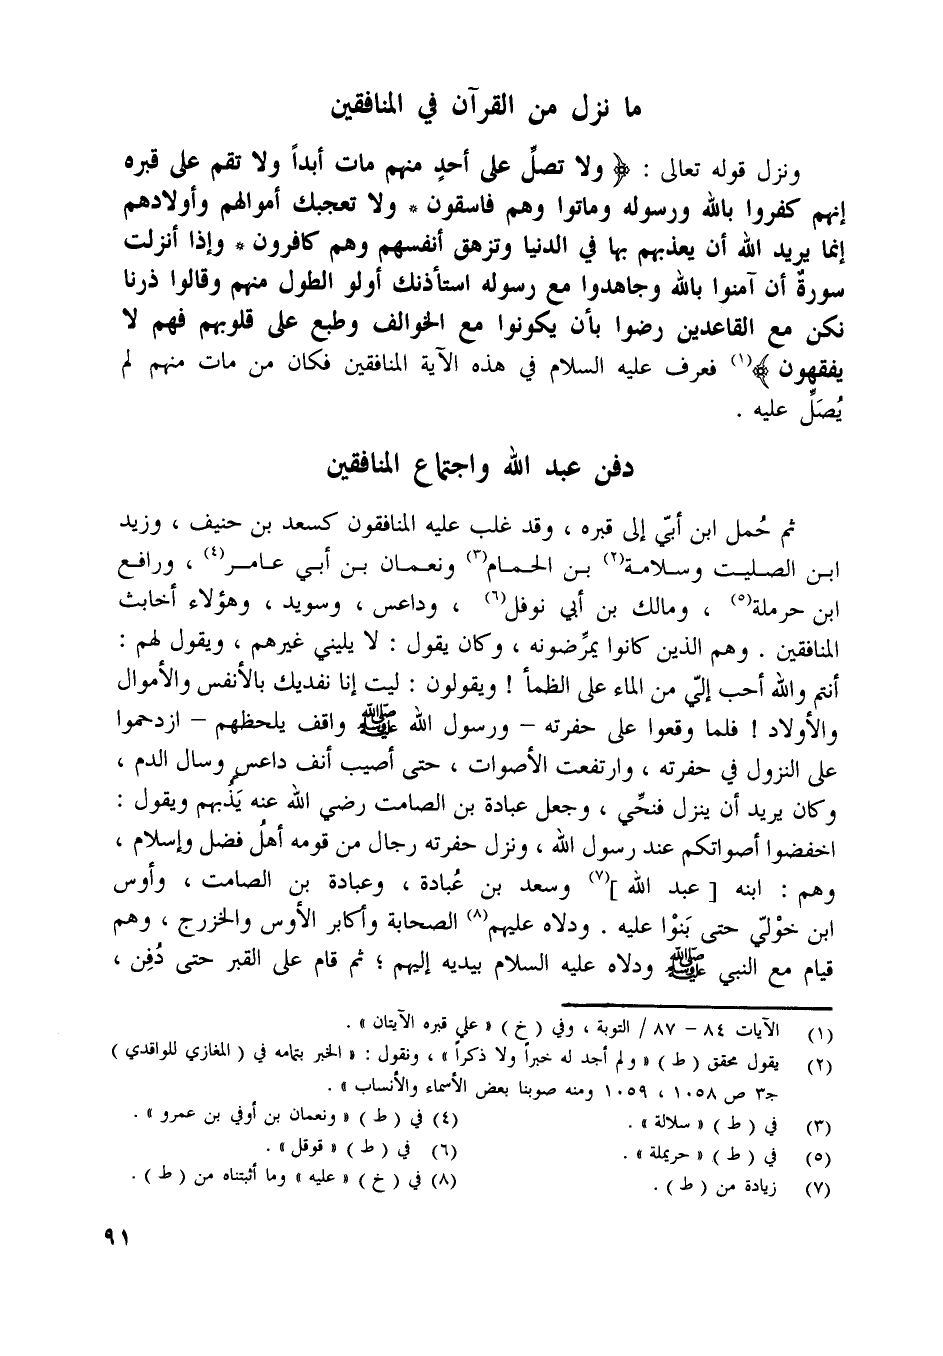 ما نزل من القرآن في المنافقين
ونزل قوله تعالى : ﴿ ولا تصلِّ على أحدٍ منهم مات أبداً ولا تقم على قبره
إنهم كفروا بالله ورسوله وماتوا وهم فاسقون * ولا تعجبك أموالهم وأولادهم
إنما يريد الله أن يعذبهم بها في الدنيا وتزهق أنفسهم وهم كافرون * وإذا أنزلت
سورةٌ أن آمنوا بالله وجاهدوا مع رسوله استأذنك أولو الطول منهم وقالوا ذرنا
نكن مع القاعدين رضوا بأن يكونوا مع الخوالف وطبع على قلوبهم فهم لا
يفقهون ﴾(١) فعرف عليه السلام في هذه الآية المنافقين فكان من مات منهم لم
يُصَلِّ عليه .
دفن عبد الله واجتماع المنافقين
ثم حُمل ابن أبيّ إلى قبره ، وقد غلب عليه المنافقون كسعد بن حنيف ، وزيد
ابن الصليت وسلامة(٢) بن الحمام(٣) ونعمان بن أبي عامر(٤) ، ورافع
ابن حرملة(٥) ، ومالك بن أبي نوفل(٦) ، وداعس ، وسويد ، وهؤلاء أخابث
المنافقين . وهم الذين كانوا يمرِّضونه ، وكان يقول : لا يليني غيرهم ، ويقول لهم :
أنتم والله أحب إليّ من الماء على الظمأ ! ويقولون : ليت إنا نفديك بالأنفس والأموال
والأولاد ! فلما وقعوا على حفرته – ورسول الله ﷺ واقف يلحظهم – ازدحموا
على النزول في حفرته ، وارتفعت الأصوات ، حتى أصيب أنف داعس وسال الدم ،
وكان يريد أن ينزل فنحِّي ، وجعل عبادة بن الصامت رضي الله عنه يَذُبهم ويقول :
اخفضوا أصواتكم عند رسول الله ، ونزل حفرته رجال من قومه أهلُ فضل وإسلام ،
وهم : ابنه [ عبد الله ](٧) وسعد بن عُبادة ، وعبادة بن الصامت ، وأوس
ابن خوْليّ حتى بَنوْا عليه . ودلاه عليهم(٨) الصحابة وأكابر الأوس والخزرج ، وهم
قيام مع النبي ﷺ ودلاه عليه السلام بيديه إليهم ؛ ثم قام على القبر حتى دُفِن ،
(١) الآيات ٨٤ – ٨٧ / التوبة ، وفي ( خ ) « على قبره الآيتان » .
(٢) يقول محقق ( ط ) « ولم أجد له خبراً ولا ذكراً » ، ونقول : « الخبر بتمامه في ( المغازي للواقدي )
جـ٣ ص ١٠٥٨ ، ١٠٥٩ ومنه صوبنا بعض الأسماء والأنساب » .
(٣) في ( ط ) « سلالة » . (٤) في ( ط ) « ونعمان بن أوفي بن عمرو » .
(٥) في ( ط ) « حريملة » . (٦) في ( ط ) « قوقل » .
(٧) زيادة من ( ط ) . (٨) في ( خ ) « عليه » وما أثبتناه من ( ط ) .
٩١